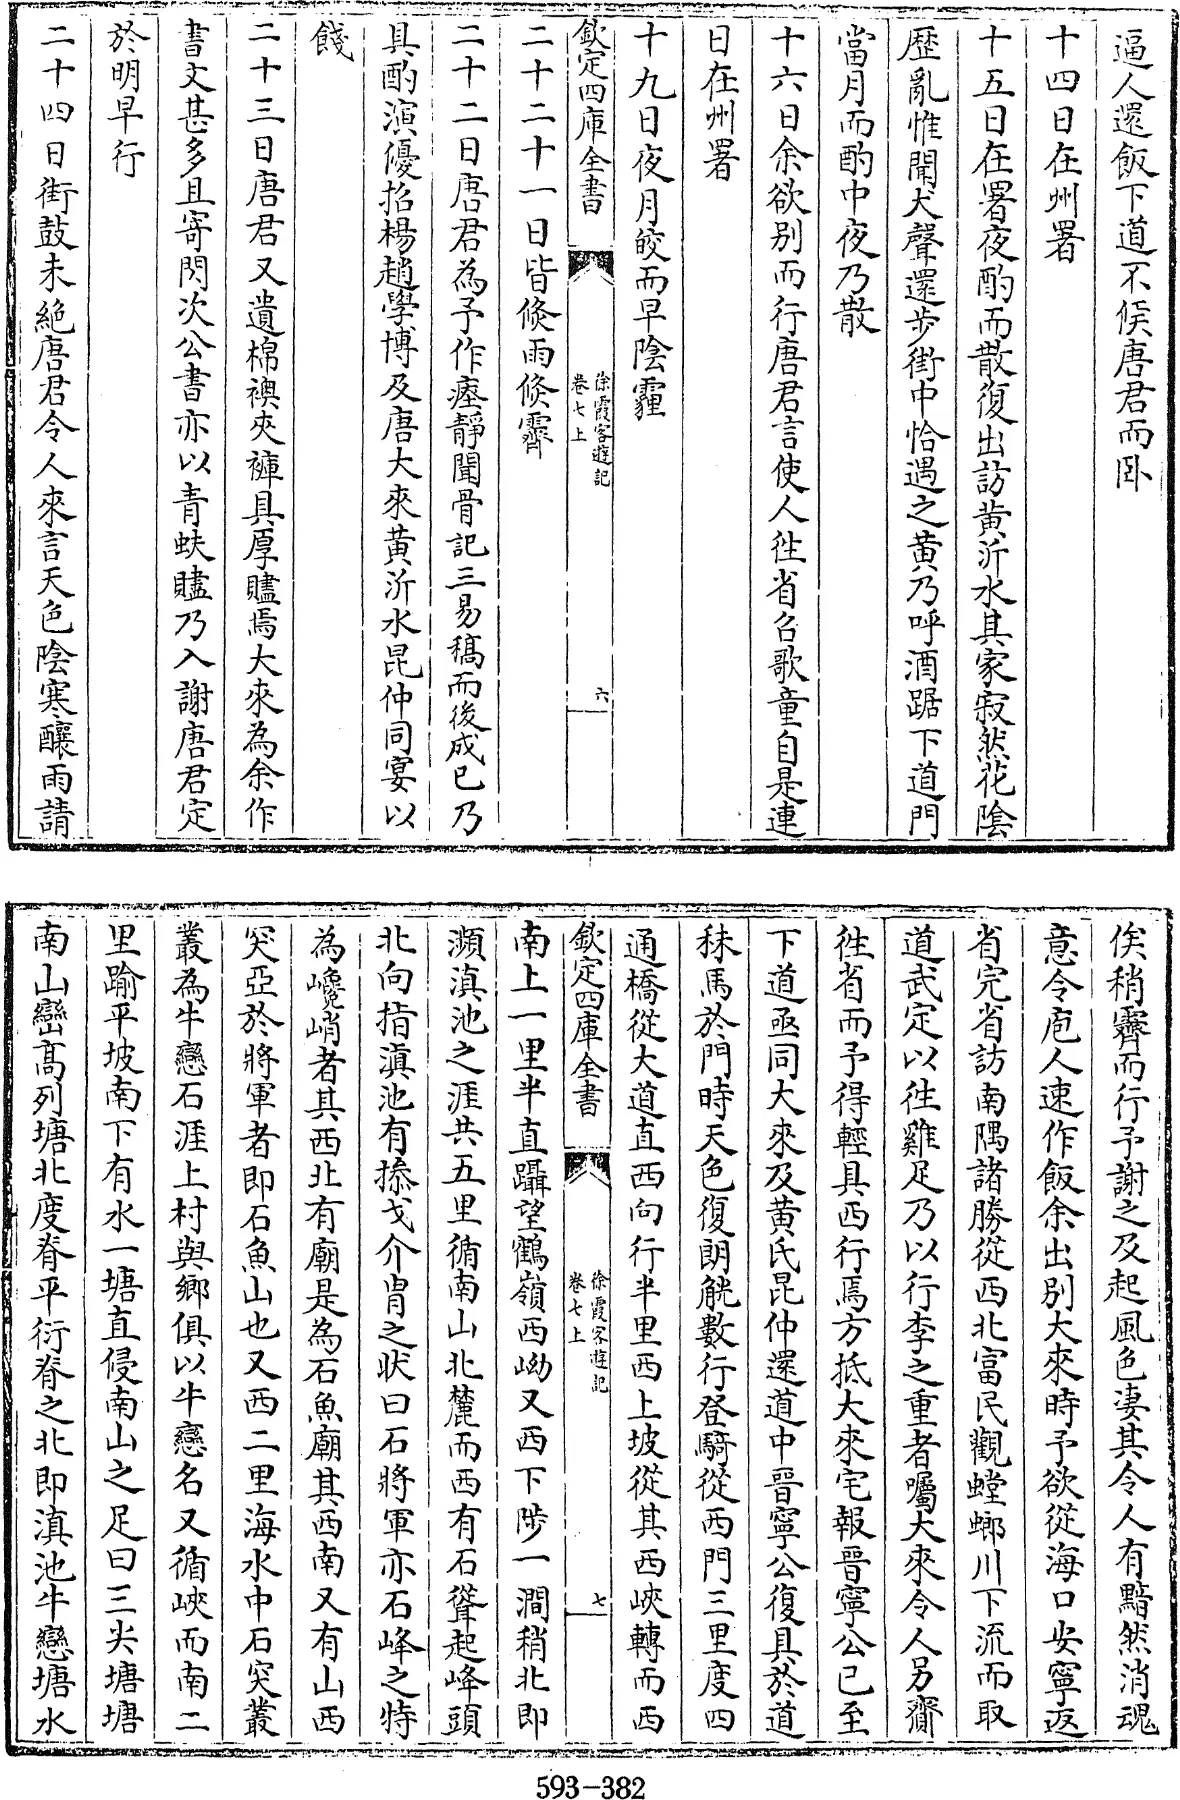 逼人還飯下道不俟唐君而卧
十四日在州署
十五日在署夜酌而散復出訪黄沂水其家寂然花陰
歷亂惟聞犬聲還步街中恰遇之黄乃呼酒踞下道門
當月而酌中夜乃散
十六日余欲别而行唐君言使人徃省召歌童自是連
日在州署
十九日夜月皎而早陰霾
欽定四庫全書
徐霞客遊記
卷七上
六
二十二十一日皆倐雨倐霽
二十二日唐君為予作瘞靜聞骨記三易稿而後成已乃
具酌演優招楊趙學博及唐大來黄沂水昆仲同宴以
餞
二十三日唐君又遺棉襖夾褲具厚贐焉大來為余作
書文甚多且寄閃次公書亦以青蚨贐乃入謝唐君定
於明早行
二十四日街鼓未絶唐君令人來言天色陰寒釀雨請
俟稍霽而行予謝之及起風色凄其令人有黯然消魂
意令庖人速作飯余出别大來時予欲從海口安寧返
省完省訪南隅諸勝從西北富民觀螳螂川下流而取
道武定以徃雞足乃以行李之重者囑大來令人另齎
徃省而予得輕具西行焉方抵大來宅報晉寧公已至
下道亟同大來及黄氏昆仲還道中晉寧公復具於道
秣馬於門時天色復朗觥數行登騎從西門三里度四
通橋從大道直西向行半里西上坡從其西峽轉而西
欽定四庫全書
徐霞客遊記
卷七上
七
南上一里半直躡望鶴嶺西坳又西下陟一澗稍北即
瀕滇池之涯共五里循南山北麓而西有石聳起峰頭
北向指滇池有摻戈介胄之狀曰石將軍亦石峰之特
為巉峭者其西北有廟是為石魚廟其西南又有山西
突亞於將軍者即石魚山也又西二里海水中石突叢
叢為牛戀石涯上村與鄉俱以牛戀名又循峽而南二
里踰平坡南下有水一塘直侵南山之足曰三尖塘塘
南山巒高列塘北度脊平衍脊之北即滇池牛戀塘水
593-382